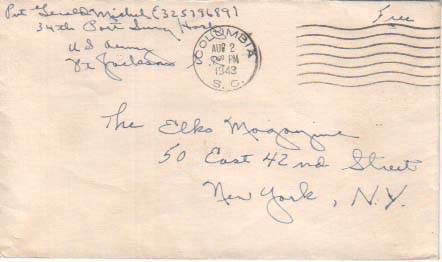 Pvt Gerald Mishel (32579689)
34th Post Surg Hosp
U S Army
Ft Jackson
COLUMBIA
AUG 2
PM
1943
S. C.
Free
The Elks Magazine
50 East 42nd Street
New York, N.Y.